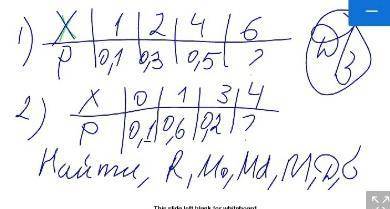 1) X | 1 | 2 | 4 | 6
P | 0,1 | 0,3 | 0,5 | ?
Д/З
2) X | 0 | 1 | 3 | 4
P | 0,1 | 0,6 | 0,2 | ?
Найти, R, Mo, Md, M, D, σ
This slide left blank for whiteboard